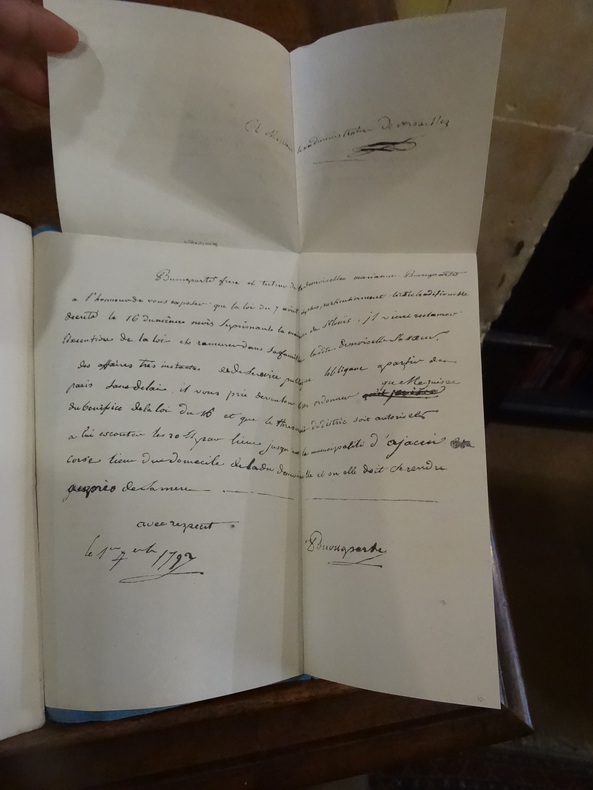 administration de Versailles
Buonaparte frere et tuteur de demoiselle marianne Buonaparte
a l'honneur de vous exposer que la loi du 7 aout
decrete le 16 du même mois supprimante la maison de St Louis, il vient reclamer
l'execution de la loi et ramener dans sa famille ladite demoiselle sa sœur,
des affaires tres instantes et de service public l'obligeant a partir de
paris sans delai, il vous prie de vouloir bien ordonner qu'elle jouisse
du benefice de la loi du 16 et que le thresorier du district soit autorisé
a lui escouter les 20 s par lieue jusqu'a la municipalité d'ajaccio
corse lieu du domicile de ladite demoiselle et ou elle doit se rendre
auprès de sa mere
avec respect
le 1er 7bre 1792
Buonaparte